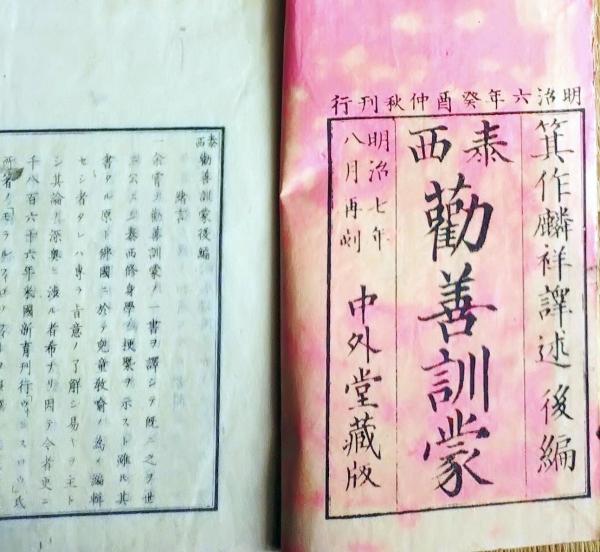 明治六年癸酉仲秋刊行
箕作麟祥譯述 後編
泰西
勸善訓蒙
明治七年
八月再刻
中外堂藏版
泰西勸善訓蒙後編
緒言
一余嘗テ勸善訓蒙ノ一書ヲ譯シテ既ニ之ヲ世
ニ公ニシ泰西修身學ノ梗槩ヲ示スト雖ㇶ其
書タル原ト佛國ニ於テ兒童敎喩ノ爲メ編輯
セシ者タレハ專ラ言意ノ了解シ易キヲ主ト
シ其論ノ深奧ニ渉ル者希ナリ因テ今者更ニ
千八百六十六年米國新育刊行ウヰンスロウ氏